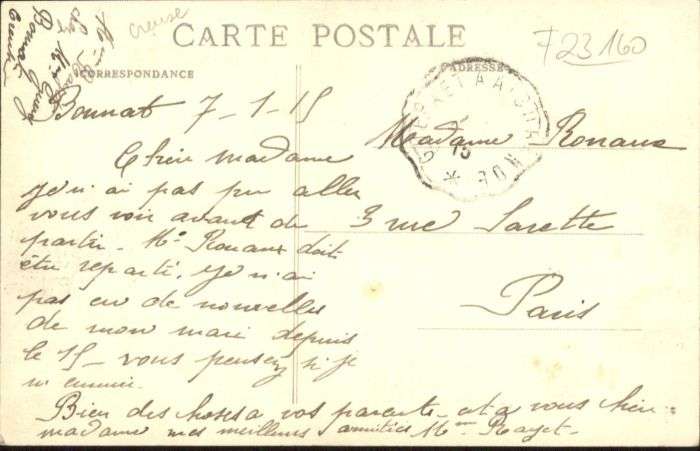 Creuse
CARTE POSTALE
F 23160
CORRESPONDANCE
ADRESSE
Bonnat 7-1-15
Chère madame
je n'ai pas pu aller
vous voir avant de
partir - Mr Rouaux doit
être reparti. Je n'ai
pas eu de nouvelles
de mon mari depuis
le 15 - vous pensez si je
m'ennuie.
Bien des choses a vos parents - et a vous chère
madame mes meilleurs amitiés Mme Rayet -
Madame Rouaux
3 rue Sarette
Paris